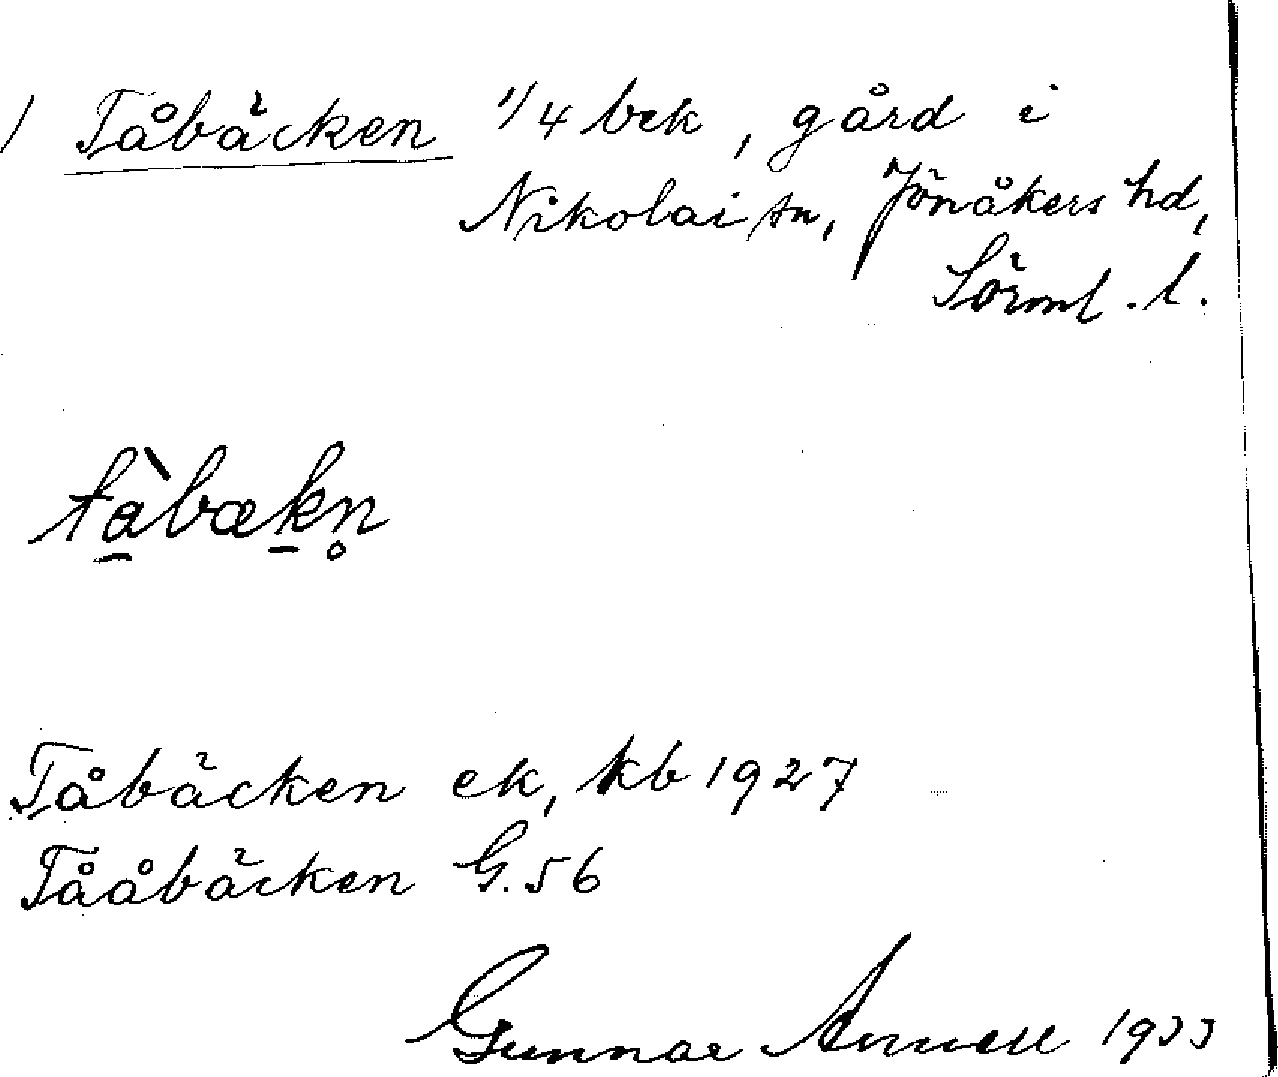 / Tåbäcken 1/4 bek, gård i
Nikolai sn, Jönåkers hd,
Sörml. l.
tà̱bæḵn̥
Tåbäcken ek, kb 1927
Tååbäcken G. 56
Gunnar 1933